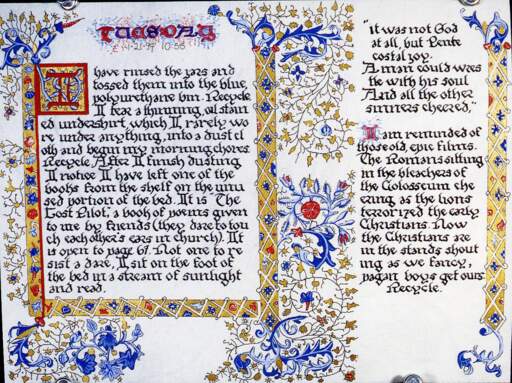 Tuesday
1-21-97 10:55
I have rinsed the jars and
tossed them into the blue,
polyurethane bin. Recycle.
I tear a thinning, oil stain
ed undershirt, which I rarely wo
re under anything, into a dust cl
oth and begin my morning chores.
Recycle. After I finish dusting
I notice I have left one of the
books from the shelf on the unu
sed portion of the bed. It is "The
Lost Pilot," a book of poems given
to me by friends (they dare to tou
ch each other's ears in church). It
is open to page 67. Not one to re
sist a dare, I sit on the foot of
the bed in a stream of sunlight
and read.
"it was not God
at all, but Pente
costal joy.
A man could wres
tle with his soul
And all the other
sinners cheered."
I am reminded of
those old, epic films.
The Romans sitting
in the bleachers of
the Colosseum che
ering as the lions
terrorized the early
Christians. Now
the Christians are
in the stands shout
ing as we fancy,
pagan boys get ours.
Recycle.